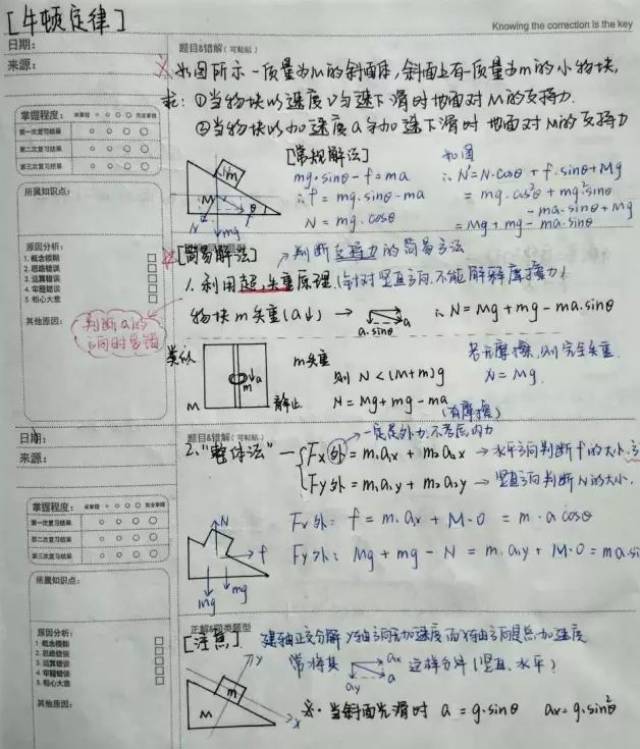 [牛顿定律]
Knowing the correction is the key
日期：
题目&错解（可粘贴）
来源：
如图所示一质量为M的斜面体，斜面上有一质量为m的小物块，
求：①当物块以速度v匀速下滑时地面对M的支持力．
②当物块以加速度a匀加速下滑时 地面对M的支持力
掌握程度：
第一次复习结果
第二次复习结果
第三次复习结果
所属知识点：
[常规解法] 如图
mg·sinθ-f=ma
∴f=mg·sinθ-ma
N=mg·cosθ
∴N'=N·cosθ+f·sinθ+Mg
=mg·cos²θ+mg·sin²θ
-ma·sinθ+Mg
=Mg+mg-ma·sinθ
m
M
θ
N
Mg
原因分析：
1. 概念模糊
2. 思路错误
3. 运算错误
4. 审题错误
5. 粗心大意
其他原因：
判断a的
方向时易错
[简易解法] →判断支持力的简易方法
1. 利用超,失重原理．(针对竖直方向,不能解释摩擦力)
物块m失重(a↓) → a a·sinθ ∴N=Mg+mg-ma·sinθ
类似
M
m
a
静止
m失重
则 N<(M+m)g
N=Mg+mg-ma
(有摩擦)
若无摩擦,则完全失重
N=Mg.
日期：
题目&错解（可粘贴）
来源：
一定是外力,不考虑内力
2."整体法"—
Fx外=m₁a₁x+m₂a₂x→水平方向判断f的大小.方
Fy外=m₁a₁y+m₂a₂y→竖直方向判断N的大小.
掌握程度：
第一次复习结果
第二次复习结果
第三次复习结果
所属知识点：
N
f
mg
Mg
Fx外: f=m·ax+M·0=m·a cosθ
Fy外: Mg+mg-N=m·a₁y+M·0=ma·si
原因分析：
1. 概念模糊
2. 思路错误
3. 运算错误
4. 审题错误
5. 粗心大意
其他原因：
[注意] 建轴正交分解 y轴方向无加速度而x轴方向是总加速度
常将其 ax ay a 这样分解(竖直、水平)
y
x
m
M
※·当斜面光滑时 a=g·sinθ